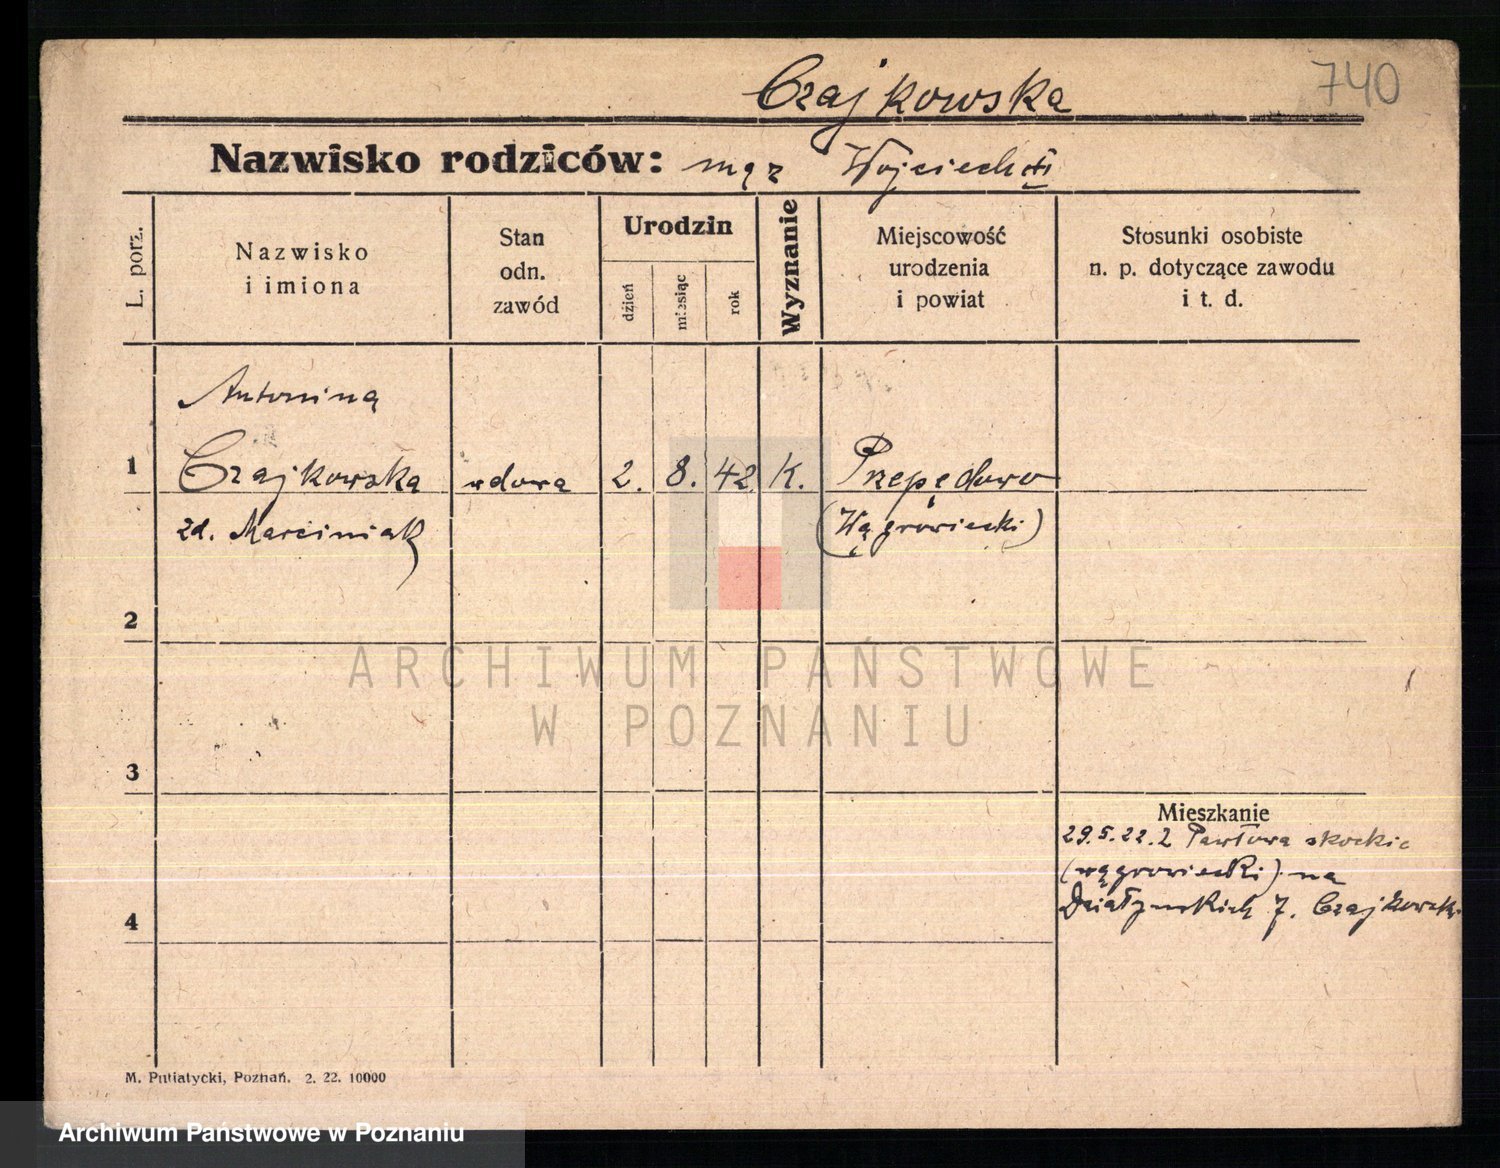 Czajkowska 740
Nazwisko rodziców: mąż Wojciech
L. porz.
Nazwisko
i imiona
Stan
odn.
zawód
Urodzin
dzień
miesiąc
rok
Wyznanie
Miejscowość
urodzenia
i powiat
Stosunki osobiste
n. p. dotyczące zawodu
i t. d.
Antonina
1 Czajkowska wdowa 2. 8. 42. K. Przepędowo
zd. Marciniak (Wągrowiecki)
2
ARCHIWUM PAŃSTWOWE
W POZNANIU
3
Mieszkanie
29.5.22. z Pawłowa skockie
(wągrowiecki) na
4 Działyńskich 7. Czajkowski
M. Putiatycki, Poznań. 2. 22. 10000
Archiwum Państwowe w Poznaniu